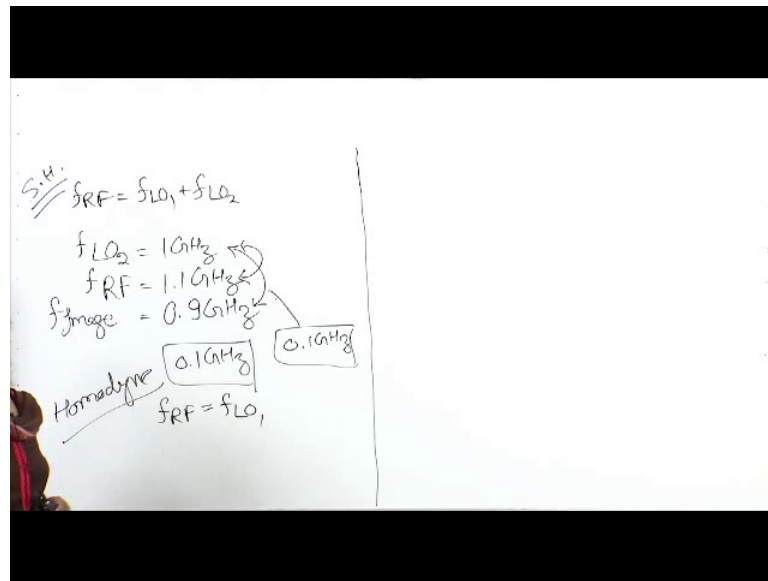 S.H.
fRF = fLO1 + fLO2
fLO2 = 1GHz
fRF = 1.1GHz
fImage = 0.9GHz
0.1GHz
0.1GHz
Homodyne
fRF = fLO1